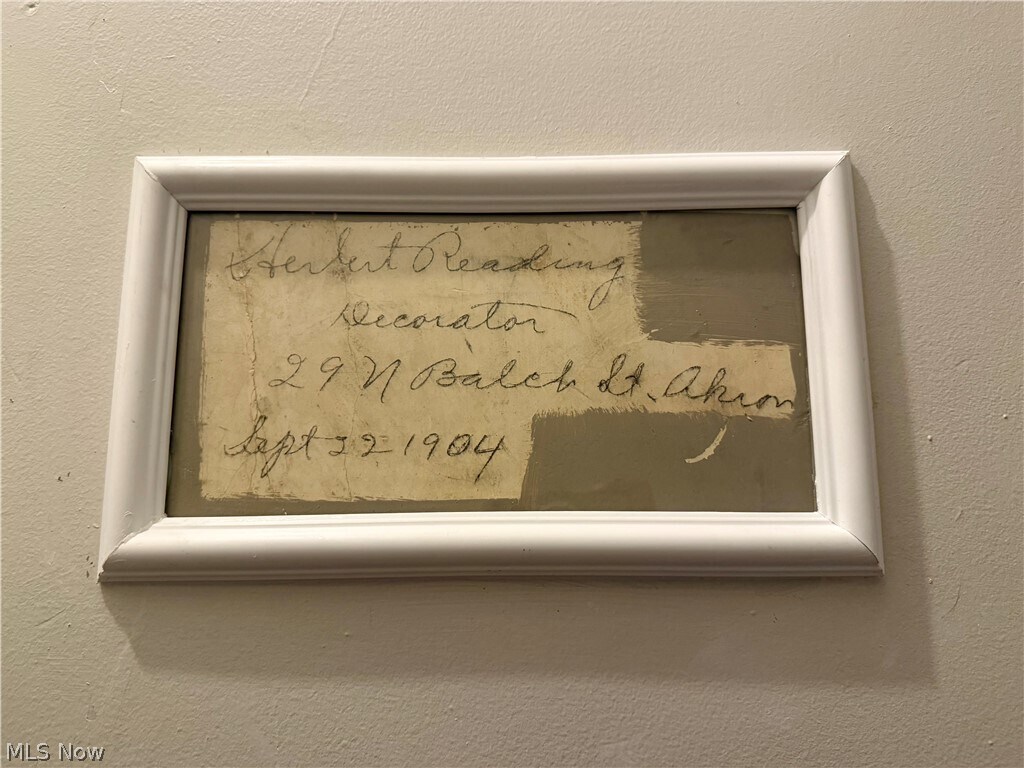 Herbert Reading
Decorator
29 N Balch St. Akron
Sept 22 1904
MLS Now